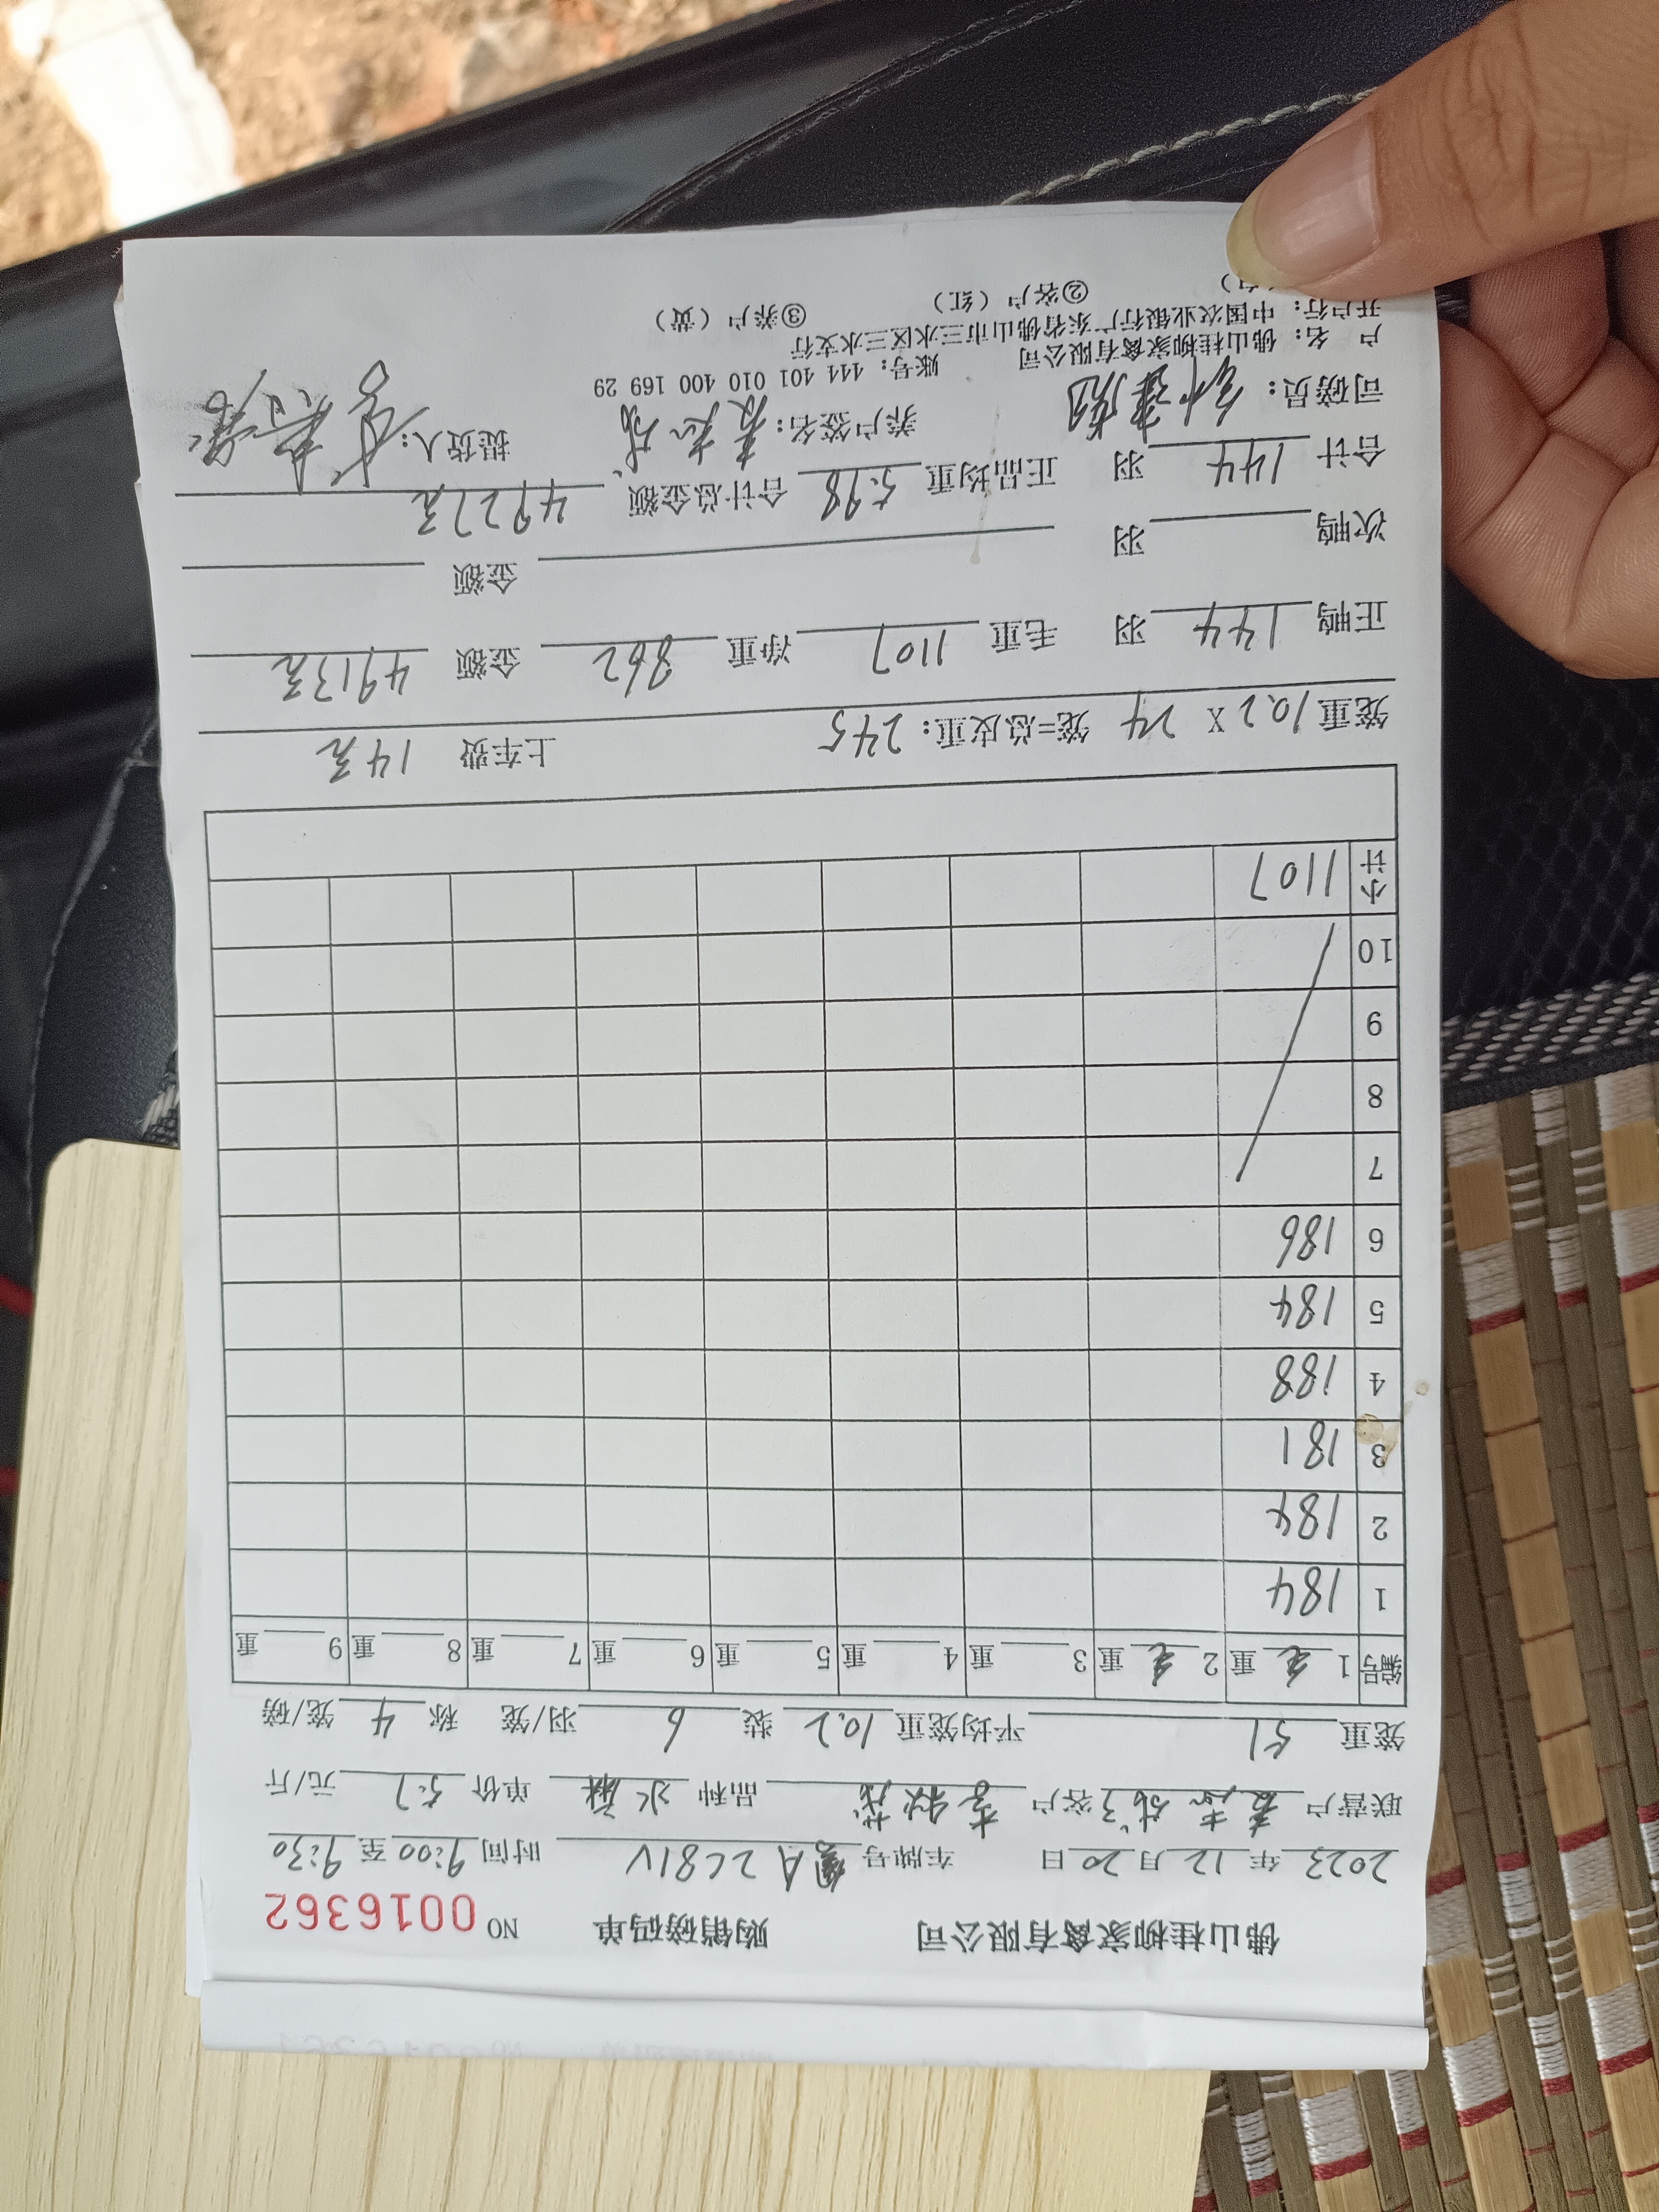 佛山桂柳家禽有限公司 购销磅码单 NO 0016362
2023年12月20日 车牌号 A2C81V 时间9:00至9:30
联营户 客户 李秋茂 品种 水麻 单价5.7元/斤
笼重51 平均笼重10.2 装6羽/笼 称4笼/磅
编号 1 重 2 重 3 重 4 重 5 重 6 重 7 重 8 重 9 重
1 184
2 184
3 181
4 188
5 184
6 186
7
8
9
10
小计 1107
笼重10.2 X 24 笼=总皮重: 245 上车费 14元
正鸭 144 羽 毛重 1107 净重 862 金额 4913元
次鸭 羽 金额
合计 144 羽 正品均重 5.98 合计总金额 4927元
司磅员: 养户签名: 提货人:
户 名: 佛山桂柳家禽有限公司 账号: 444 401 010 400 169 29
开户行: 中国农业银行广东省佛山市三水区三水支行
②客户(红) ③养户(黄)